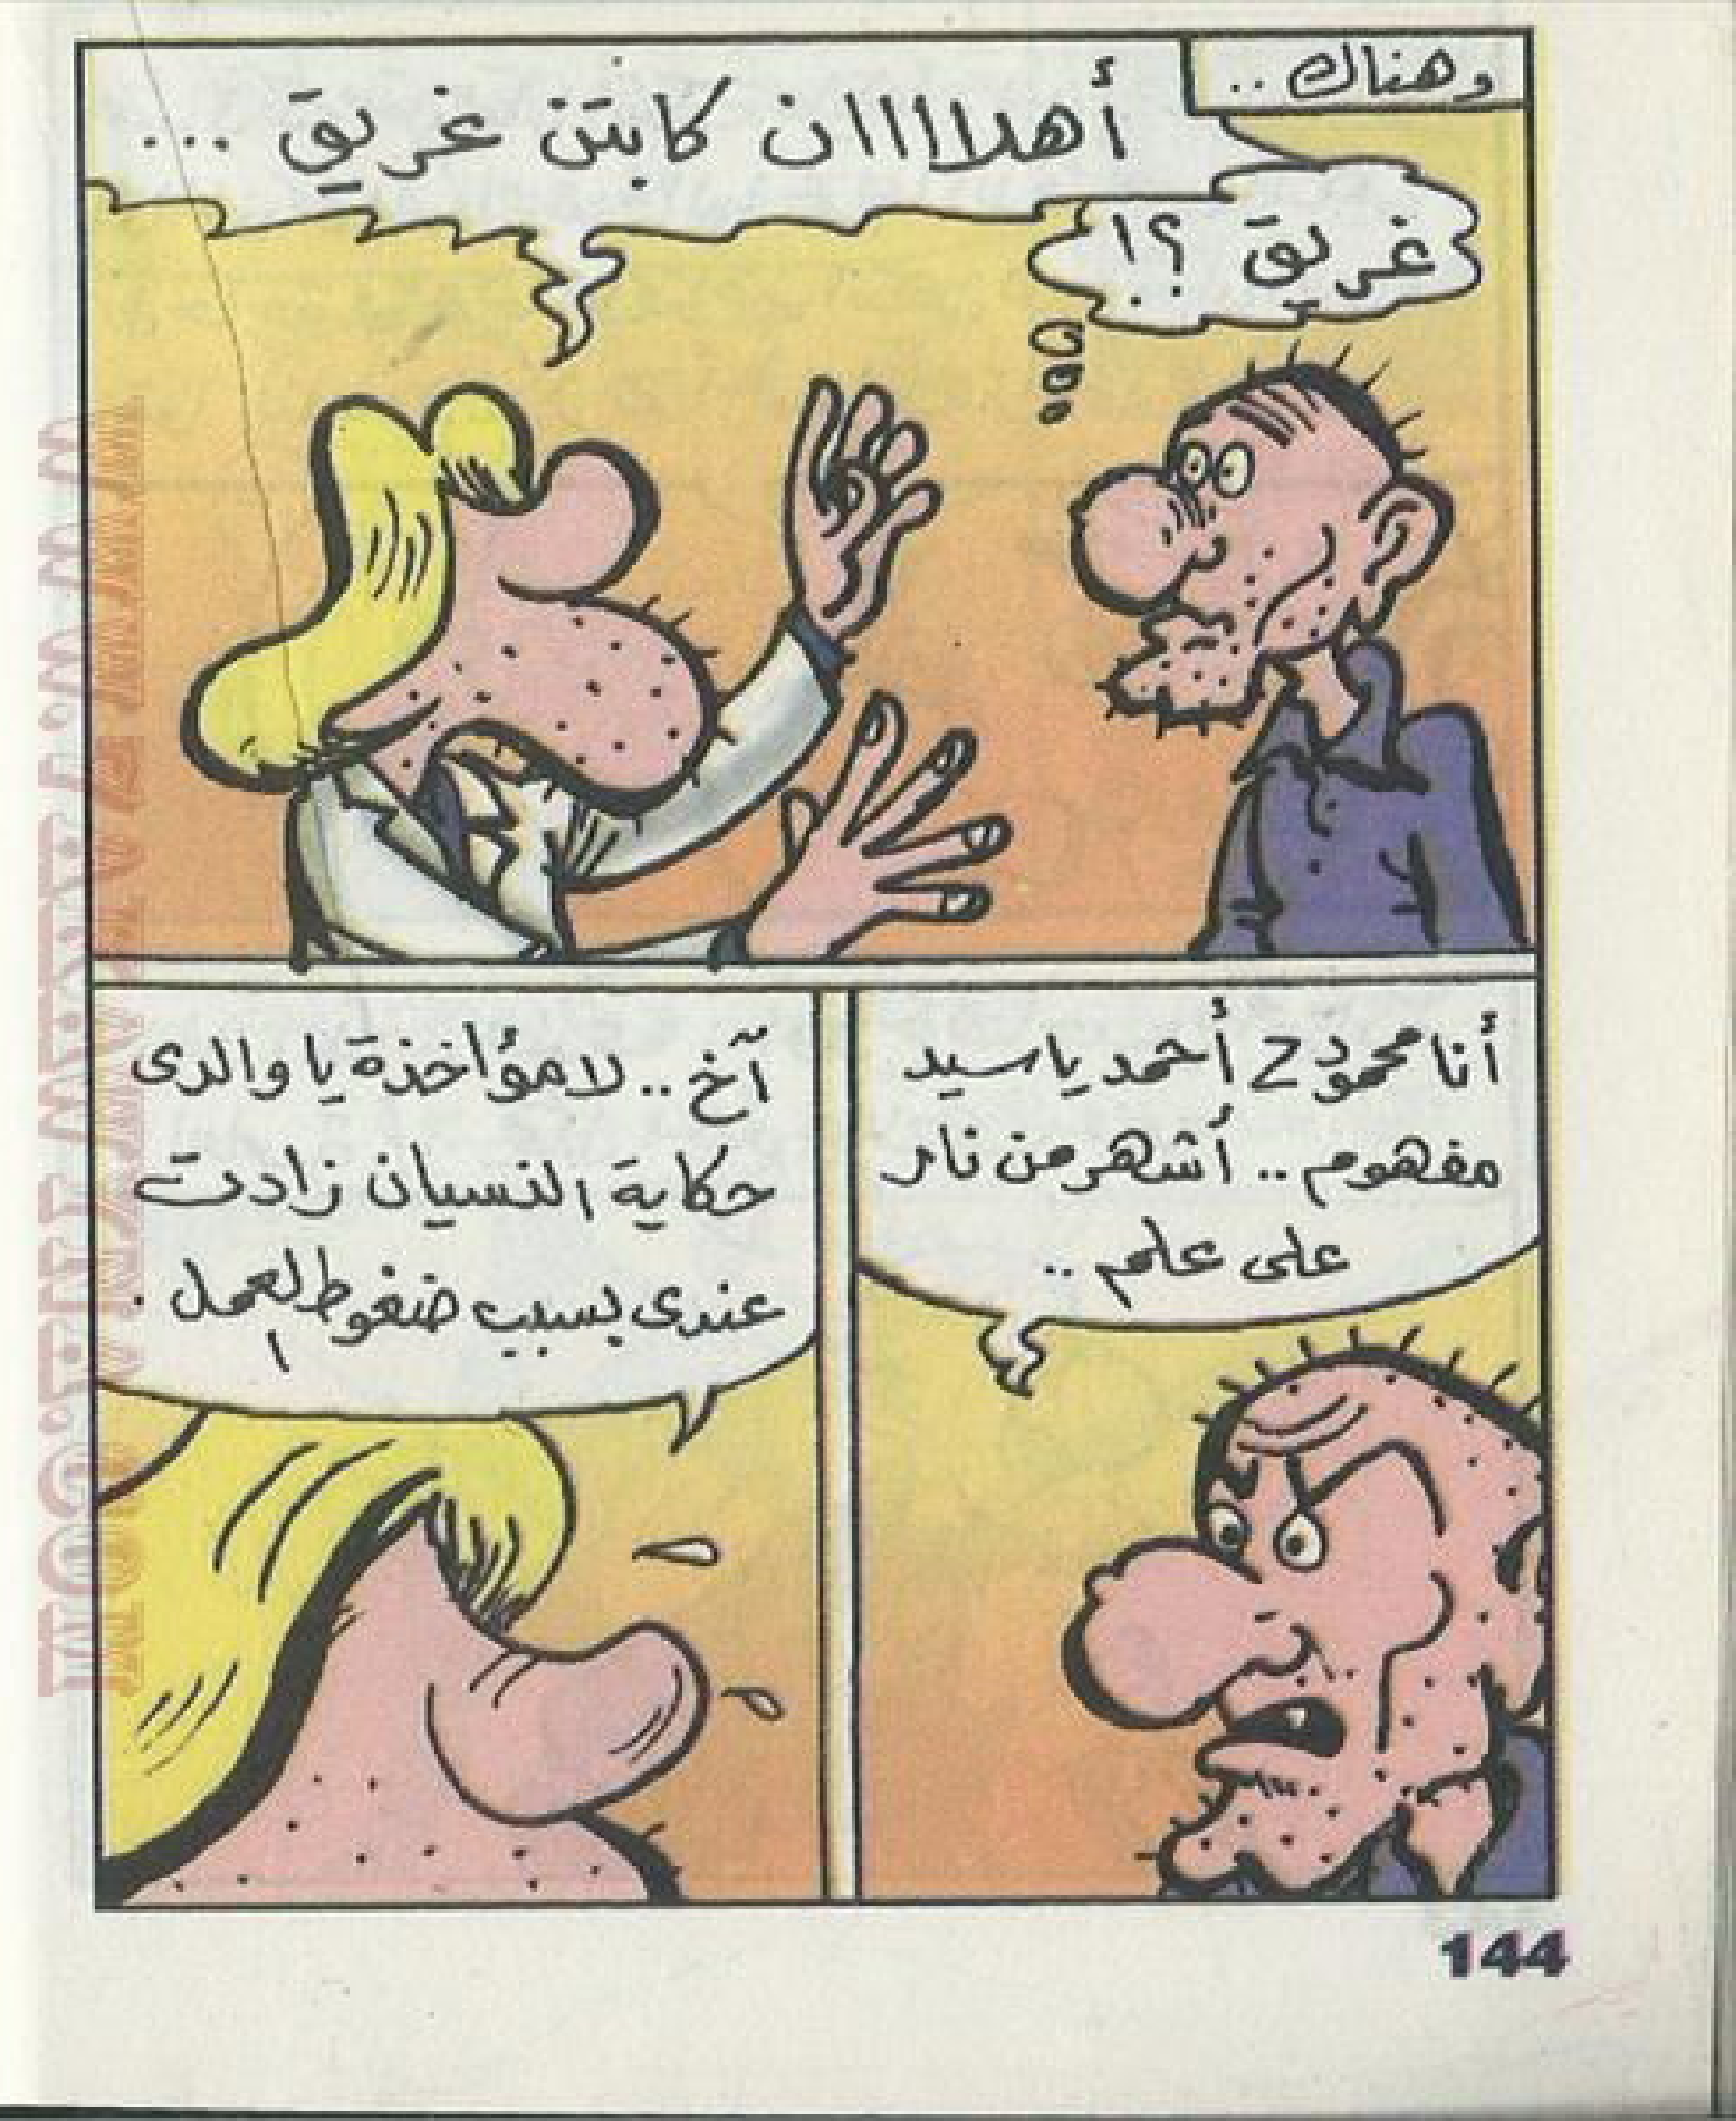 وهناك ..
أهلااااان كابتن غريق ...
غريق ؟!
أنا محمود أحمد ياسيد
مفهوم .. أشهر من نار
على علم ..
آخ .. لا مؤاخذة يا والدى
حكاية النسيان زادت
عندى بسبب ضغوط العمل .
144